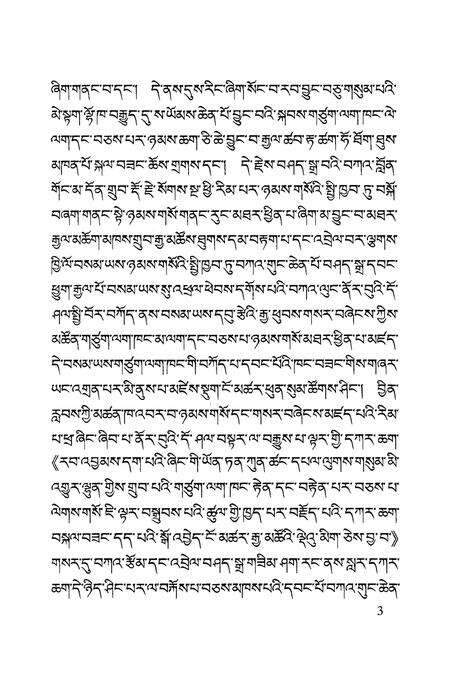 ཞིག་གནང་བ་དང༌། དེ་ནས་དུས་རིང་ཞིག་སོང་བ་རབ་བྱུང་བཅུ་གསུམ་པའི་
མེ་སྟག་ལྷོ་ཁ་བརྒྱུད་དུ་ས་ཡོམས་ཆེན་པོ་བྱུང་བའི་སྐབས་གཙུག་ལག་ཁང་ལེ་
ལག་དང་བཅས་པར་ཉམས་ཆག་ཅི་ཆེ་བྱུང་བ་རྒྱལ་ཚབ་རྟ་ཚག་ཧོ་ཐོག་ཐུས་
མཁན་པོ་སྐལ་བཟང་ཆོས་གྲགས་དང༌། དེ་རྗེས་བཤད་སྒྲ་བའི་བཀའ་བློན་
གོང་མ་དོན་གྲུབ་རྡོ་རྗེ་སོགས་སྔ་ཕྱི་རིམ་པར་ཉམས་གསོའི་སྤྱི་ཁྱབ་ཏུ་བསྐོ་
བཞག་གནང་སྟེ་ཉམས་གསོ་གནང་རུང་མཐར་ཕྱིན་པ་ཞིག་མ་བྱུང་བ་མཐར་
རྒྱལ་མཆོག་མཁས་གྲུབ་རྒྱ་མཚོས་ཐུགས་དམ་བརྟག་པ་དང་འབྲེལ་བར་ལྕགས་
ཁྱི་ལོ་བསམ་ཡས་ཉམས་གསོའི་སྤྱི་ཁྱབ་ཏུ་བཀའ་གུང་ཆེན་པོ་བཤད་སྒྲ་དབང་
ཕྱུག་རྒྱལ་པོ་བསམ་ཡས་སུ་འཕྲལ་ཕེབས་དགོས་པའི་བཀའ་ལུང་ནོར་བུའི་དོ་
ཤལ་སྤྱི་བོར་བཀོད་ནས་བསམ་ཡས་དབུ་རྩེའི་རྒྱ་ཕུབས་གསར་བཞེངས་ཀྱིས་
མཚོན་གཙུག་ལག་ཁང་མ་ལག་དང་བཅས་པ་ཉམས་གསོ་མཐར་ཕྱིན་པ་མཛད་
དེ་བསམ་ཡས་གཙུག་ལག་ཁང་གི་བཀོད་པ་དབང་པོའི་ཁང་བཟང་གིས་གཞར་
ཡང་འགྲན་པར་མི་ནུས་པ་མཛེས་སྡུག་ངོ་མཚར་ཕུན་སུམ་ཚོགས་ཤིང༌། བྱིན་
རླབས་ཀྱི་མཚན་ཁ་འབར་བ་ཉམས་གསོ་དང་གསར་བཞེངས་མཛད་པའི་རིམ་
པ་ཕྲ་ཞིང་ཞིབ་པ་ནོར་བུའི་དོ་ཤལ་བསྟར་ལ་བརྒྱུས་པ་ལྟར་གྱི་དཀར་ཆག་
《རབ་འབྱམས་དག་པའི་ཞིང་གི་ཡོན་ཏན་ཀུན་ཚང་དཔལ་ལུགས་གསུམ་མི་
འགྱུར་ལྷུན་གྱིས་གྲུབ་པའི་གཙུག་ལག་ཁང་རྟེན་དང་བརྟེན་པར་བཅས་པ་
ལེགས་གསོ་ཇི་ལྟར་བསྒྲུབས་པའི་ཚུལ་གྱི་ཁྱད་པར་བརྗོད་པའི་དཀར་ཆག་
བསྐལ་བཟང་དད་པའི་སྒོ་འབྱེད་ངོ་མཚར་རྒྱ་མཚོའི་ལྡེའུ་མིག་ཅེས་བྱ་བ》
གསར་དུ་བཀའ་རྩོམ་དང་འབྲེལ་བཤད་སྒྲ་གཟིམ་ཤག་རང་ནས་སླར་དཀར་
ཆག་དེ་ཉིད་ཤིང་པར་ལ་བརྐོས་པ་བཅས་མཁས་པའི་དབང་པོ་བཀའ་གུང་ཆེན་
3